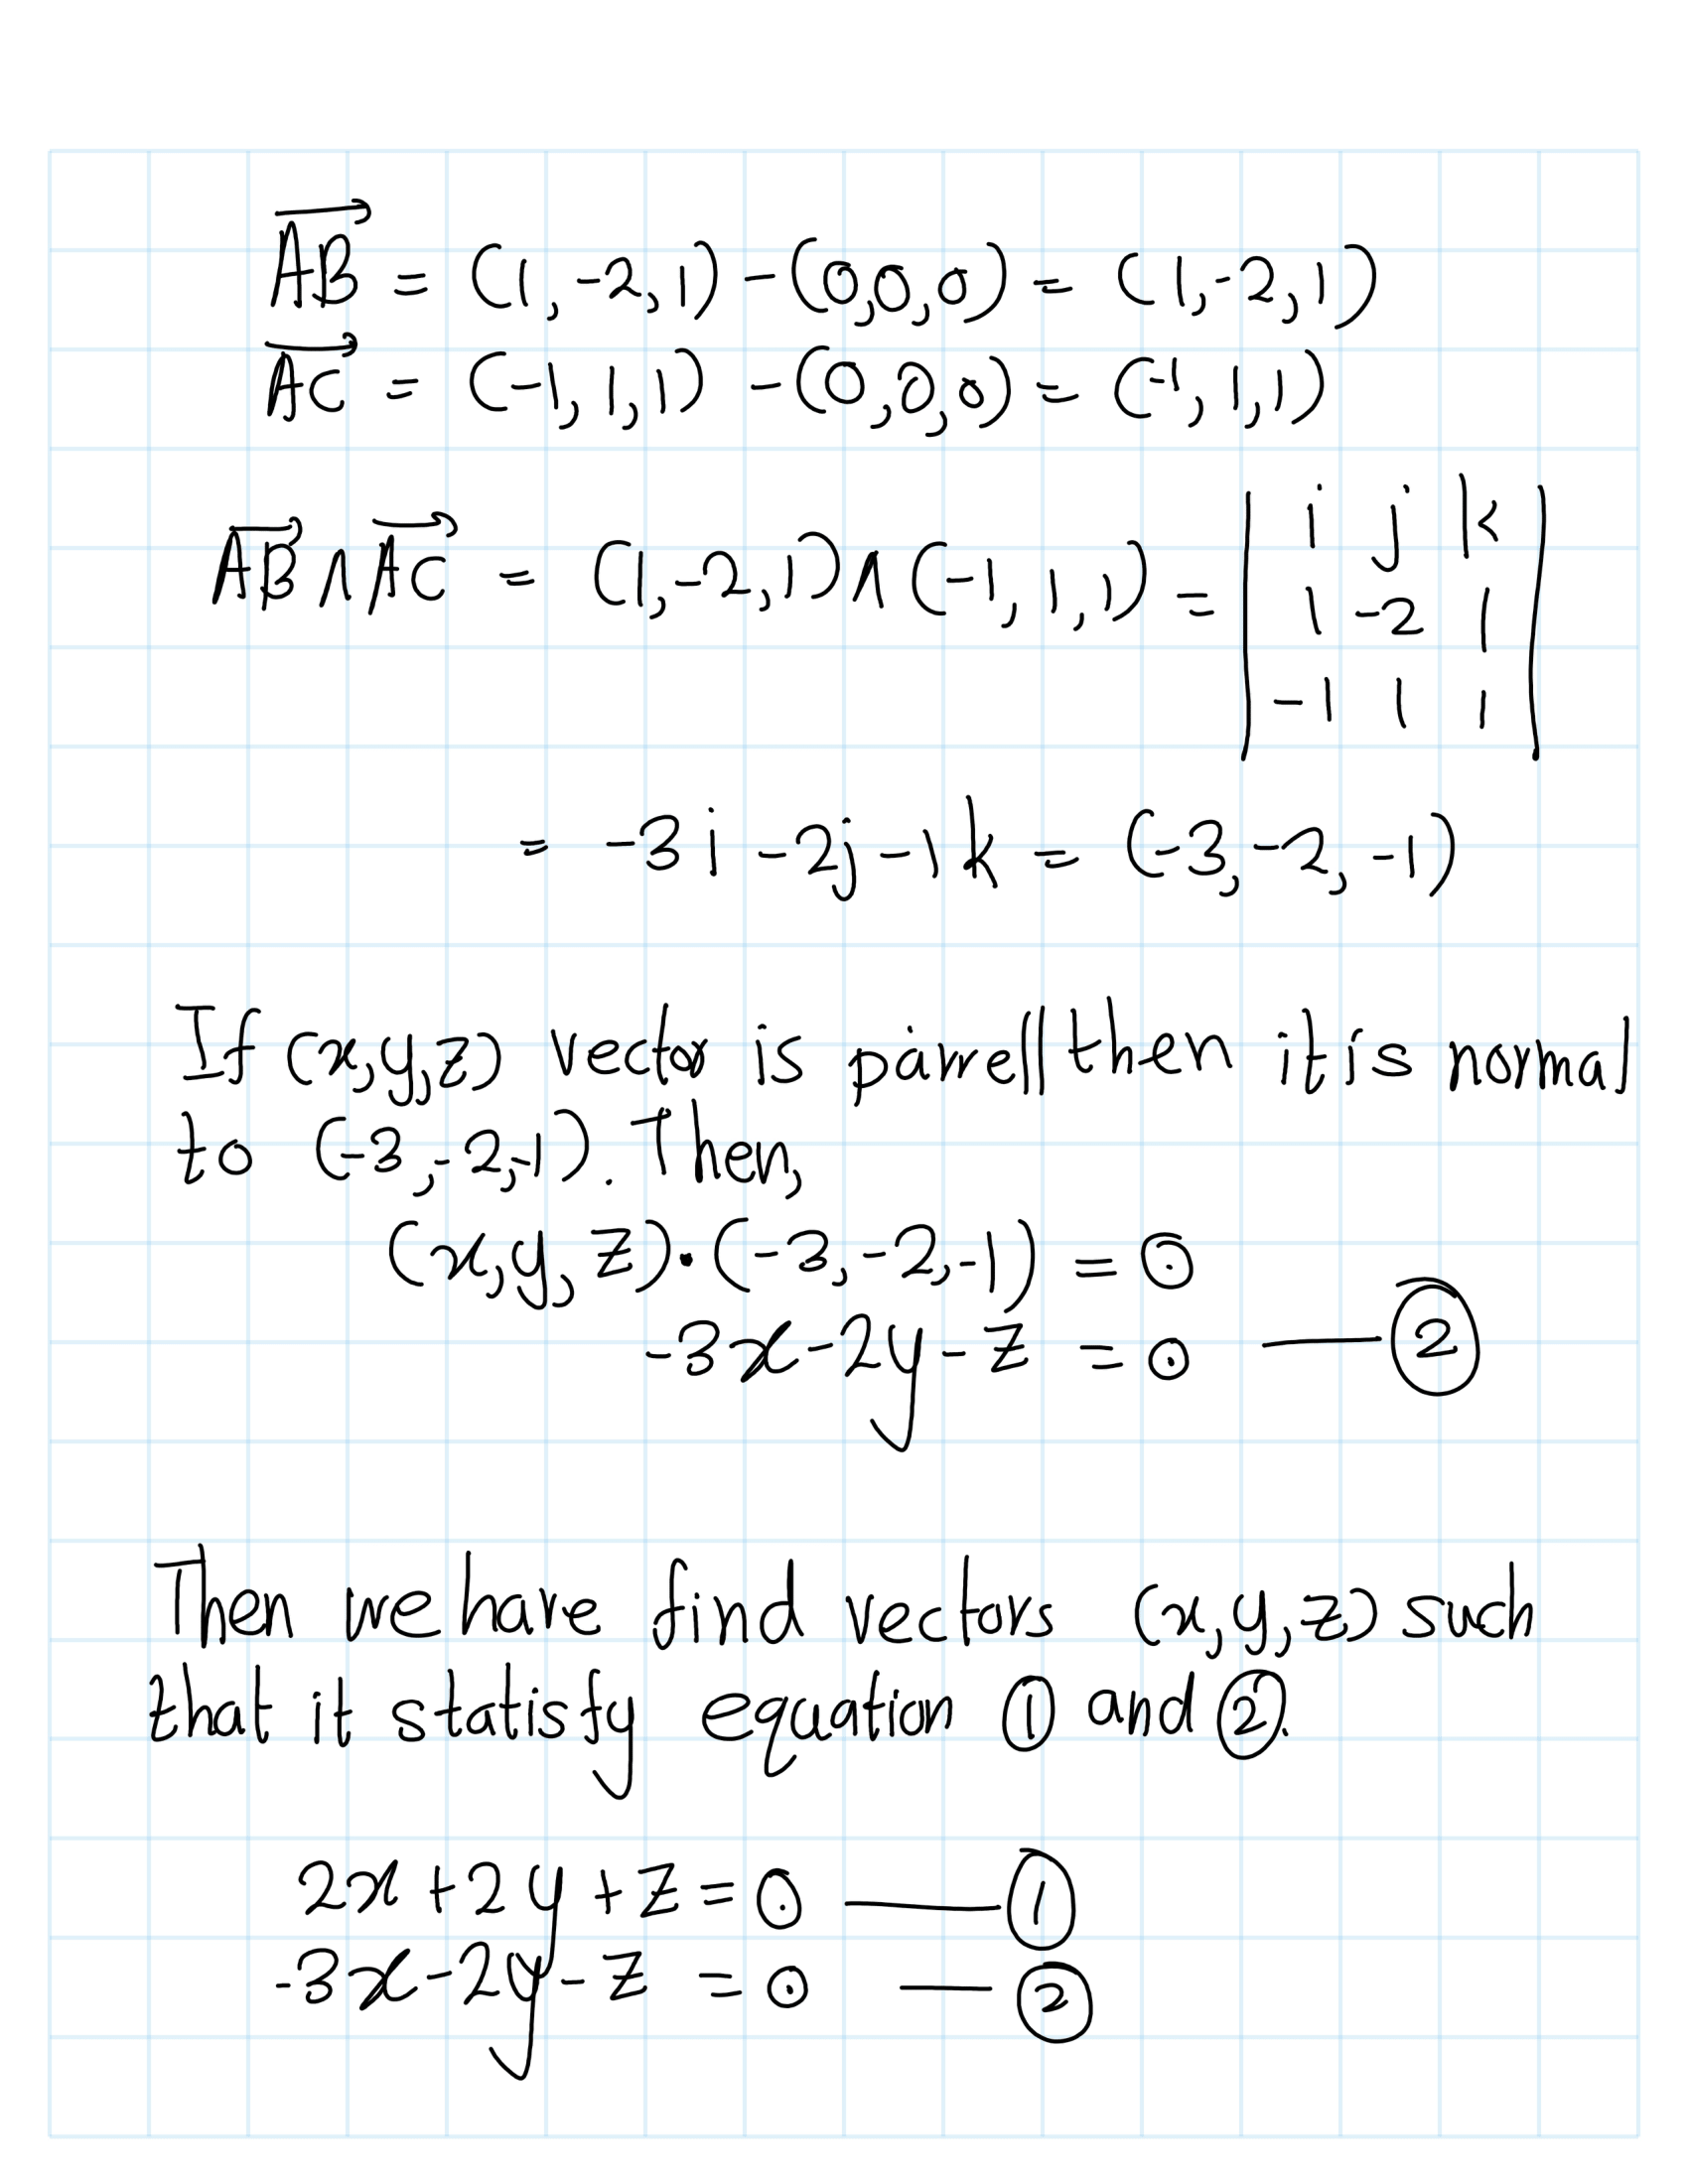 AB = (1,-2,1) - (0,0,0) = (1,-2,1)
AC = (-1,1,1) - (0,0,0) = (-1,1,1)
AB ∧ AC = (1,-2,1) ∧ (-1,1,1) = | i j k
1 -2 1
-1 1 1 |
= -3i - 2j - 1k = (-3,-2,-1)
If (x,y,z) vector is parrell then it is normal
to (-3,-2,-1). Then,
(x,y,z)·(-3,-2,-1) = 0
-3x-2y-z = 0 — ②
Then we have find vectors (x,y,z) such
that it statisfy equation ① and ②.
2x+2y+z=0 — ①
-3x-2y-z = 0 — ②